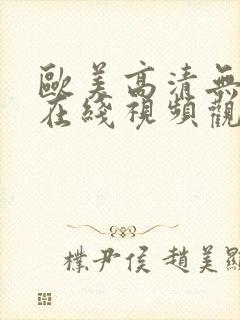 歐美高清無
在綫視頻觀
檏尹侯 趙美顯